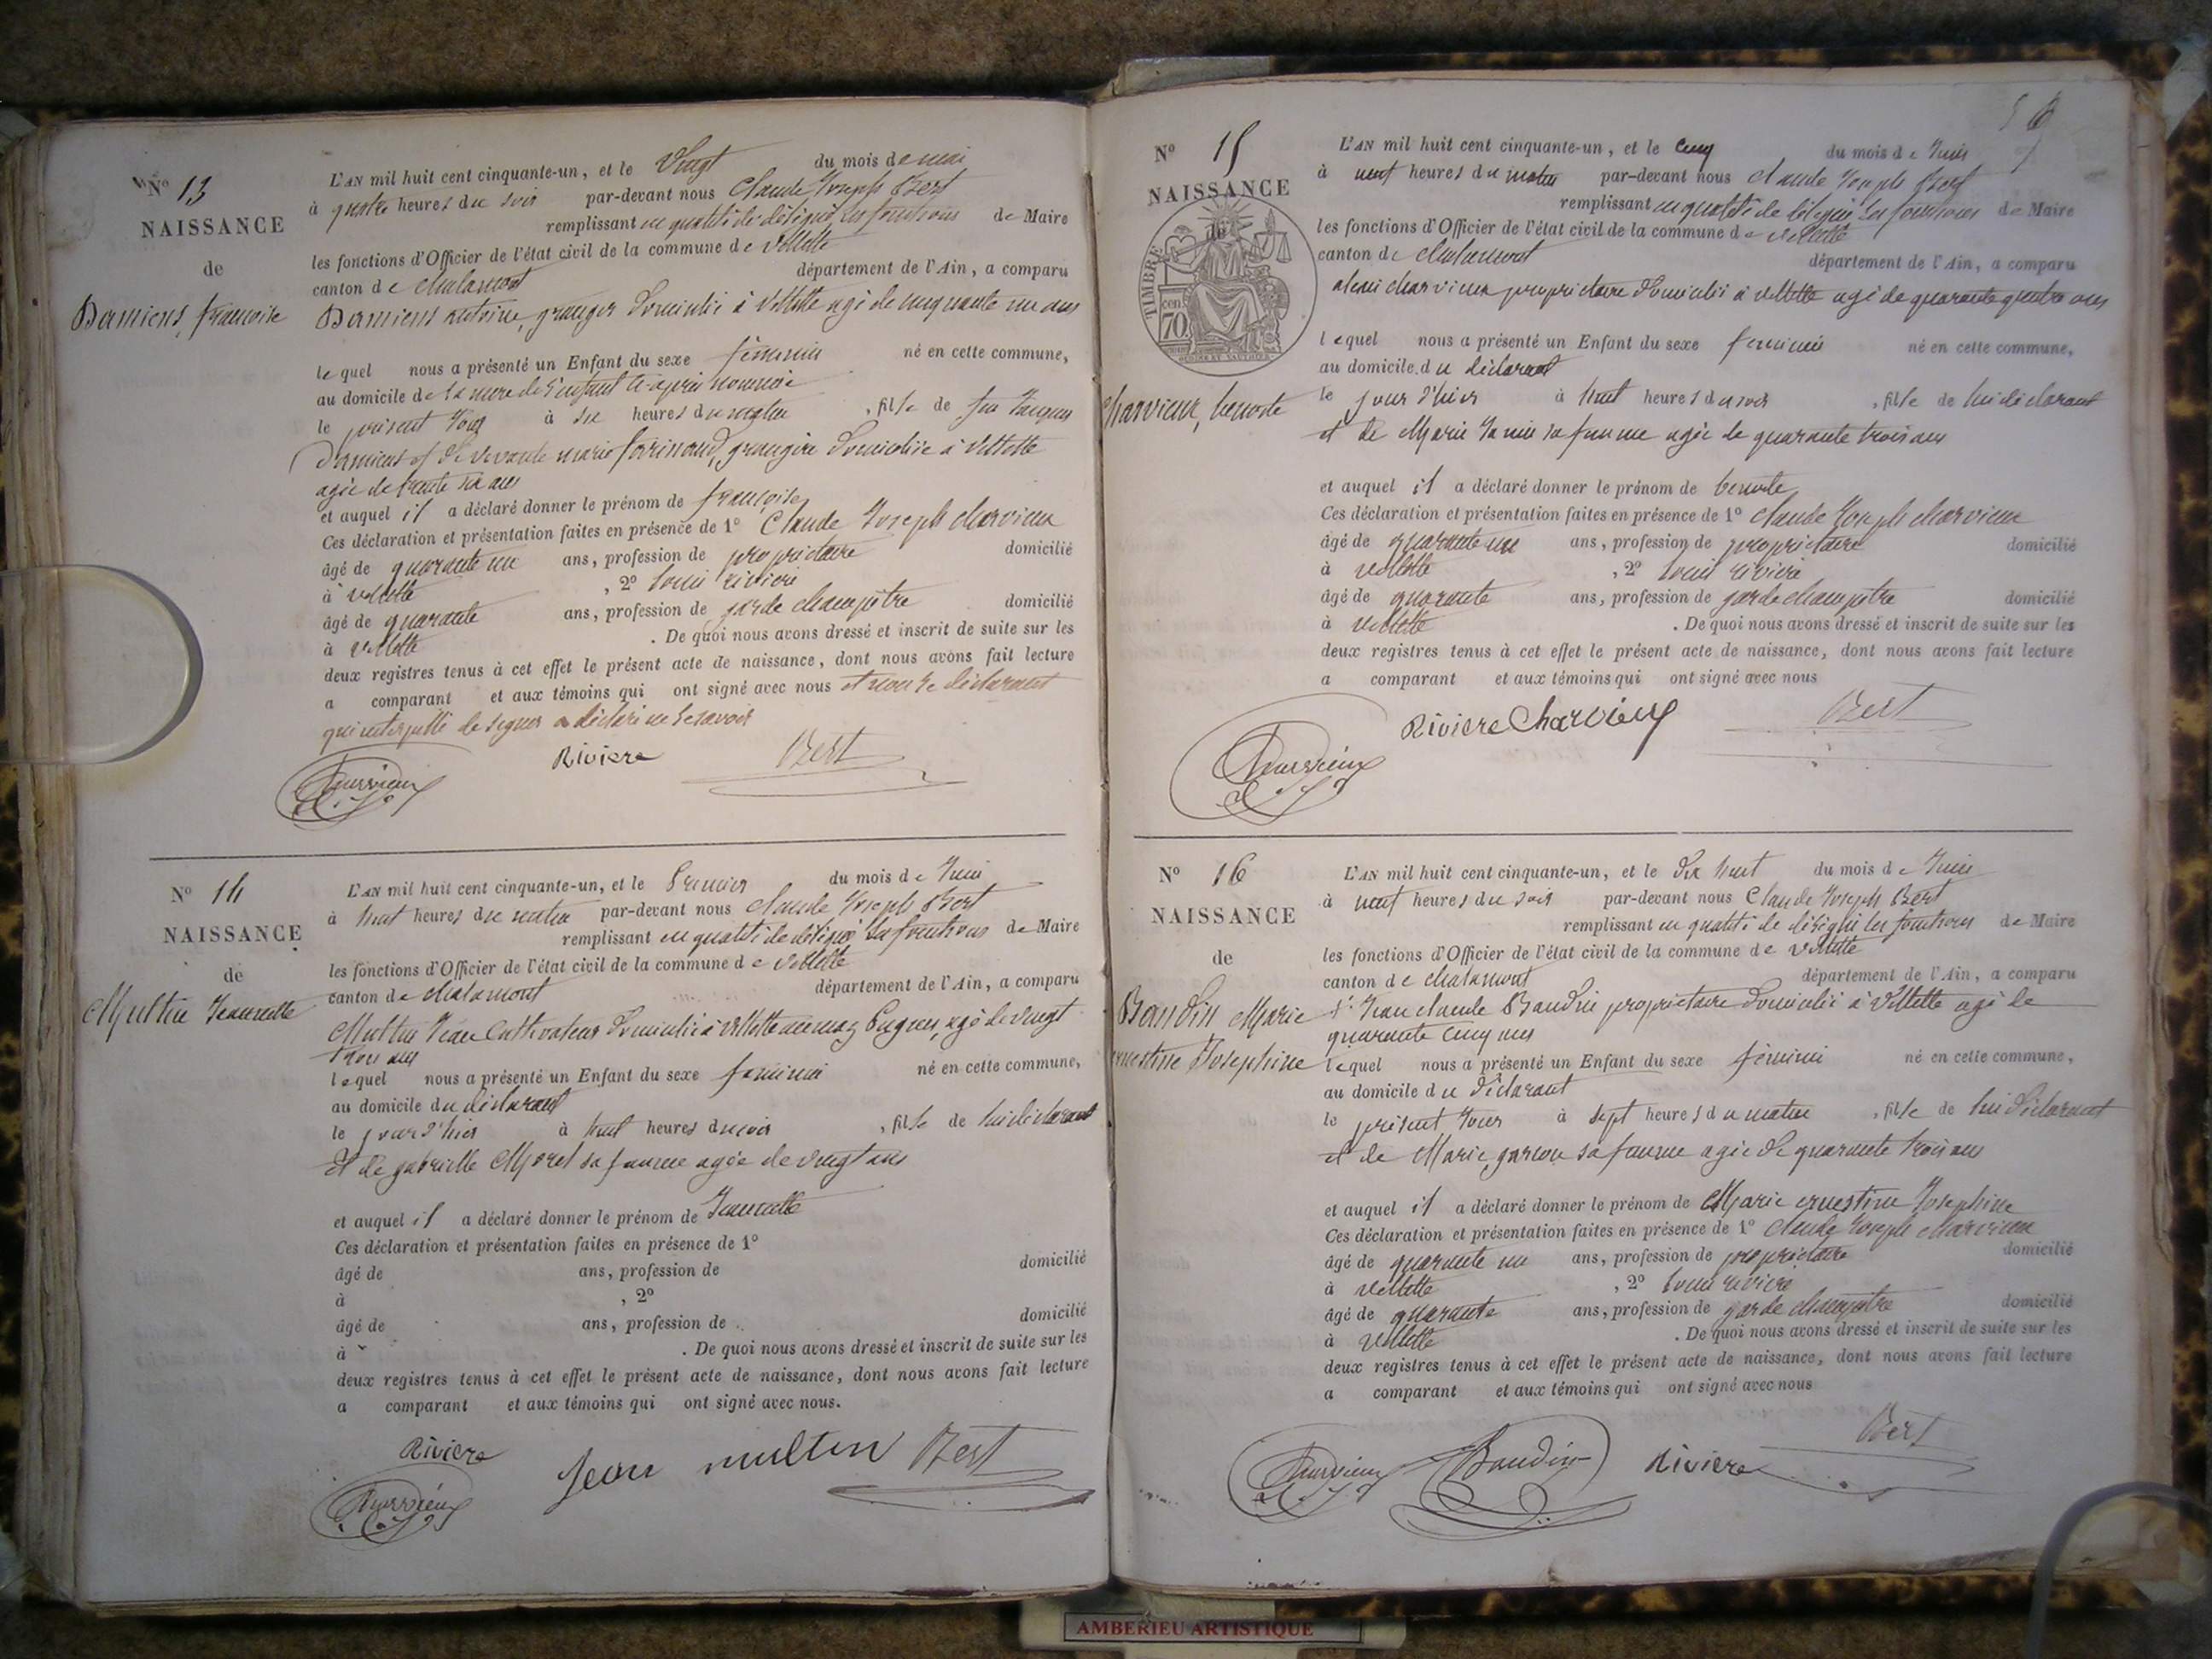 N° 13
NAISSANCE
de
Damiens, francoise
L'AN mil huit cent cinquante-un, et le Vingt du mois de mai
à quatre heures du soir par-devant nous Claude Joseph Bert
remplissant en qualité de délégué les fonctions de Maire
les fonctions d'Officier de l'état civil de la commune de Villette
canton de chalamont département de l'Ain, a comparu
Damiens antoine, granger domicilié à Villette agé de cinquante un ans
lequel nous a présenté un Enfant du sexe féminin né en cette commune,
au domicile de la mere de l'enfant ci-après nommée
le présent jour à six heures du matin, fille de feu Jacques
Damiens et de vivante marie grangère domiciliée à Villette
agée de trente six ans
et auquel il a déclaré donner le prénom de françoise
Ces déclaration et présentation faites en présence de 1° Claude Joseph charvieux
âgé de quarante un ans, profession de propriétaire domicilié
à villette, 2° louis riviere
âgé de quarante ans, profession de garde champêtre domicilié
à villette . De quoi nous avons dressé et inscrit de suite sur les
deux registres tenus à cet effet le présent acte de naissance, dont nous avons fait lecture
a comparant et aux témoins qui ont signé avec nous et non le déclarant
qui interpellé de signer a déclaré ne le savoir
Riviere Bert
Charvieux
N° 14
NAISSANCE
de
Multin Jeannette
L'AN mil huit cent cinquante-un, et le Premier du mois de Juin
à huit heures du matin par-devant nous claude Joseph Bert
remplissant en qualité de délégué les fonctions de Maire
les fonctions d'Officier de l'état civil de la commune de Villette
canton de chalamont département de l'Ain, a comparu
Multin Jean Cultivateur domicilié à Villette agé de vingt
trois ans
lequel nous a présenté un Enfant du sexe féminin né en cette commune,
au domicile du déclarant
le jour d'hier à huit heures du soir, fille de lui déclarant
et de gabrielle Morel sa femme agée de vingt ans
et auquel il a déclaré donner le prénom de Jeannette
Ces déclaration et présentation faites en présence de 1°
âgé de ans, profession de domicilié
à , 2°
âgé de ans, profession de domicilié
à . De quoi nous avons dressé et inscrit de suite sur les
deux registres tenus à cet effet le présent acte de naissance, dont nous avons fait lecture
a comparant et aux témoins qui ont signé avec nous.
Riviere Jean multin Bert
Charvieux
N° 15
NAISSANCE
de
TIMBRE
cen
70
Charvieux, benoite
L'AN mil huit cent cinquante-un, et le cinq du mois de Juin
à neuf heures du matin par-devant nous claude Joseph Bert
remplissant en qualité de délégué les fonctions de Maire
les fonctions d'Officier de l'état civil de la commune de villette
canton de chalamont département de l'Ain, a comparu
charvieux propriétaire domicilié à villette agé de quarante quatre ans
lequel nous a présenté un Enfant du sexe féminin né en cette commune,
au domicile du déclarant
le jour d'hier à huit heures du soir, fille de lui déclarant
et de Marie sa femme agée de quarante trois ans
et auquel il a déclaré donner le prénom de benoite
Ces déclaration et présentation faites en présence de 1° claude Joseph charvieux
âgé de quarante un ans, profession de propriétaire domicilié
à villette, 2° louis riviere
âgé de quarante ans, profession de garde champetre domicilié
à villette . De quoi nous avons dressé et inscrit de suite sur les
deux registres tenus à cet effet le présent acte de naissance, dont nous avons fait lecture
a comparant et aux témoins qui ont signé avec nous
Riviere Charvieux Bert
Charvieux
N° 16
NAISSANCE
de
Baudin Marie
ernestine Josephine
L'AN mil huit cent cinquante-un, et le dix huit du mois de Juin
à neuf heures du soir par-devant nous Claude Joseph Bert
remplissant en qualité de délégué les fonctions de Maire
les fonctions d'Officier de l'état civil de la commune de villette
canton de chalamont département de l'Ain, a comparu
sr Jean claude Baudin propriétaire domicilié à Villette agé de
quarante cinq ans
lequel nous a présenté un Enfant du sexe féminin né en cette commune,
au domicile du déclarant
le présent jour à sept heures du matin, fille de lui déclarant
et de Marie garcon sa femme agée de quarante trois ans
et auquel il a déclaré donner le prénom de Marie ernestine Josephine
Ces déclaration et présentation faites en présence de 1° claude Joseph charvieux
âgé de quarante un ans, profession de propriétaire domicilié
à villette, 2° louis riviere
âgé de quarante ans, profession de garde champêtre domicilié
à villette . De quoi nous avons dressé et inscrit de suite sur les
deux registres tenus à cet effet le présent acte de naissance, dont nous avons fait lecture
a comparant et aux témoins qui ont signé avec nous
Bert
Charvieux Baudin Riviere
AMBERIEU ARTISTIQUE